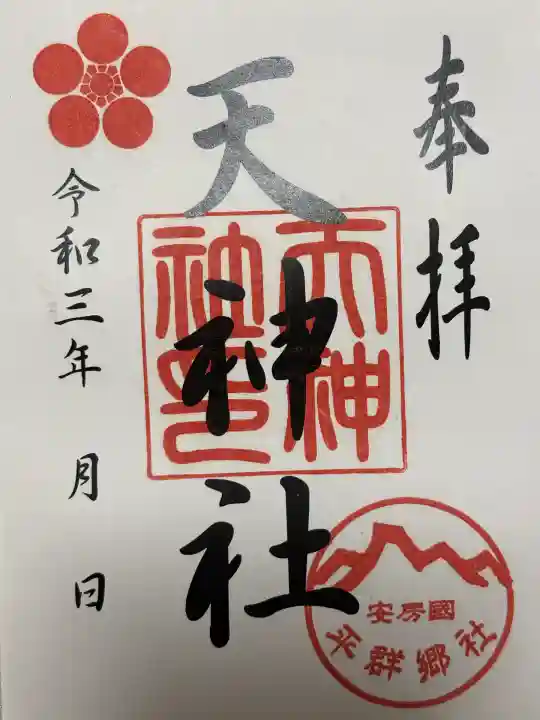 奉拝
天神社
天神
社印
令和三年 月 日
安房國
平群郷社